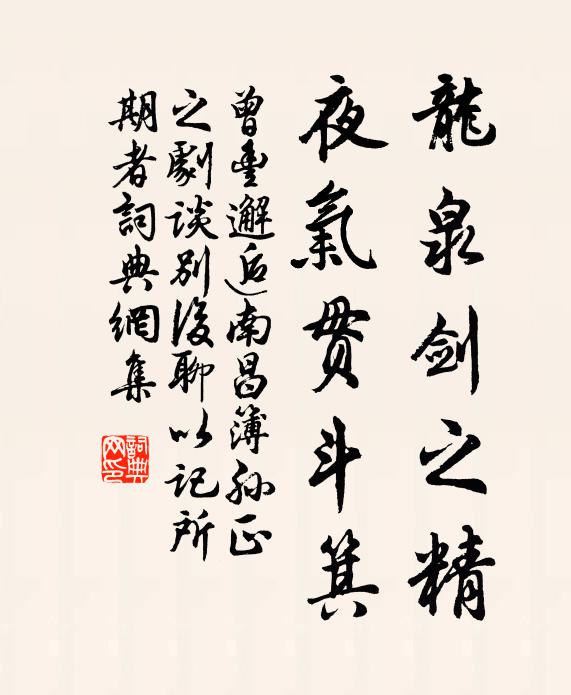 龍泉剑之精
夜氣貫斗箕
曾豊邂逅南昌簿孙正
之劇談别後聊以記所
期者詞典網集
詞典
网印